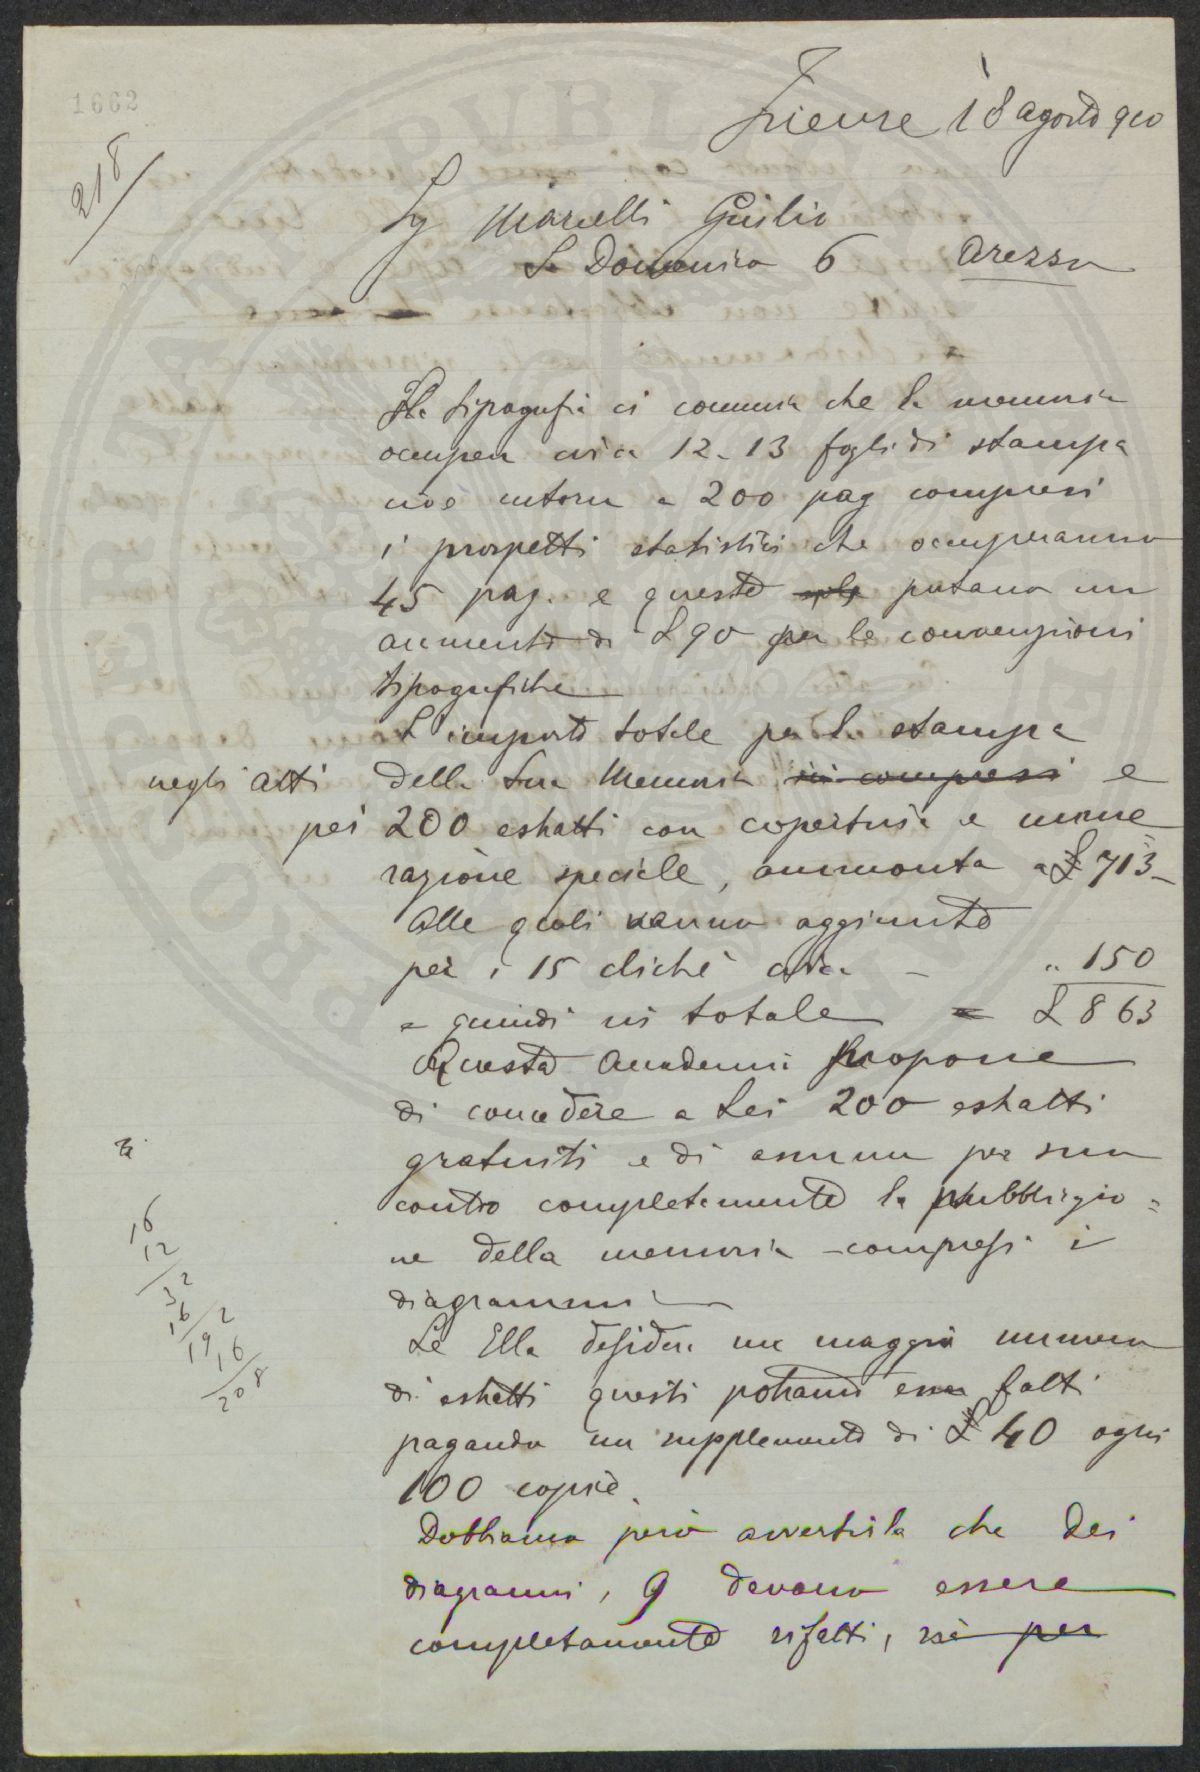 1662
218
Firenze 18 agosto 910
Sg Marcelli Giulio
S. Domenico 6 Arezzo
La tipografia ci comunica che la memoria
occupera circa 12-13 fogli di stampa
cioè intorno a 200 pag compresi
i prospetti statistici che occuperanno
45 pag. e questo portano un
aumento di £ 90 per le convenzioni
tipografiche
L'importo totale per la stampa
negli atti della Sua Memoria in compresi e
per 200 estratti con copertina e nume
razione speciale, ammonta a £ 713-
Alle quali vanno aggiunto
per i 15 clichè circa - " 150
e quindi in totale = £ 863
Questa Accademia propone
di concedere a Lei 200 estratti
gratuiti e di assumere per suo
conto completamente la pubblicazio=
ne della memoria - compresi i
diagrammi
Se Ella desidera un maggior numero
di estratti questi potranno esser fatti
pagando un supplemento di £ 40 ogni
100 copie.
Dobbiamo però avvertirla che dei
diagrammi, 9 devono essere
completamente rifatti, nè per
16
12
32
16
192
16
208